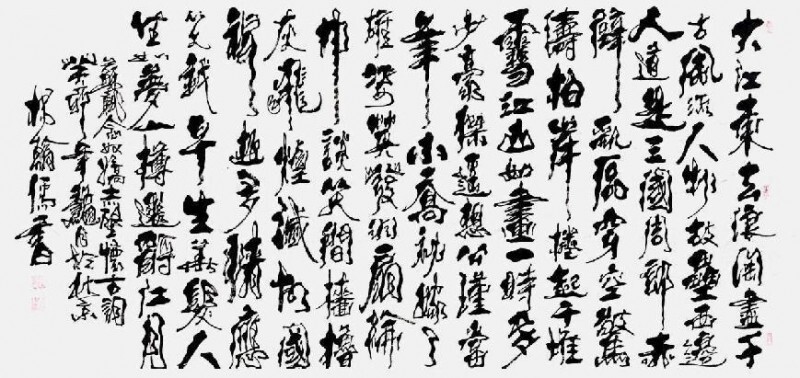 大江東去浪淘盡千
古風流人物故壘西邊
人道是三國周郎赤
壁亂石穿空驚
濤拍岸捲起千堆
雪江山如畫一時多
少豪傑遙想公瑾當
年小喬初嫁了
雄姿英發羽扇綸
巾談笑間檣櫓
灰飛煙滅故國
神遊多情應
笑我早生華髮人
生如夢一樽還酹江月
蘇軾念奴嬌赤壁懷古詞
癸卯年月於北京
楊儒書